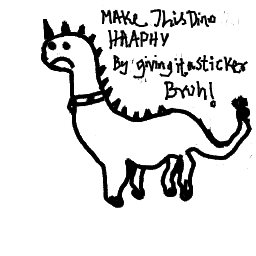 MAKE This Dino
HAAPHY
By giving it a sticker
Bruh!